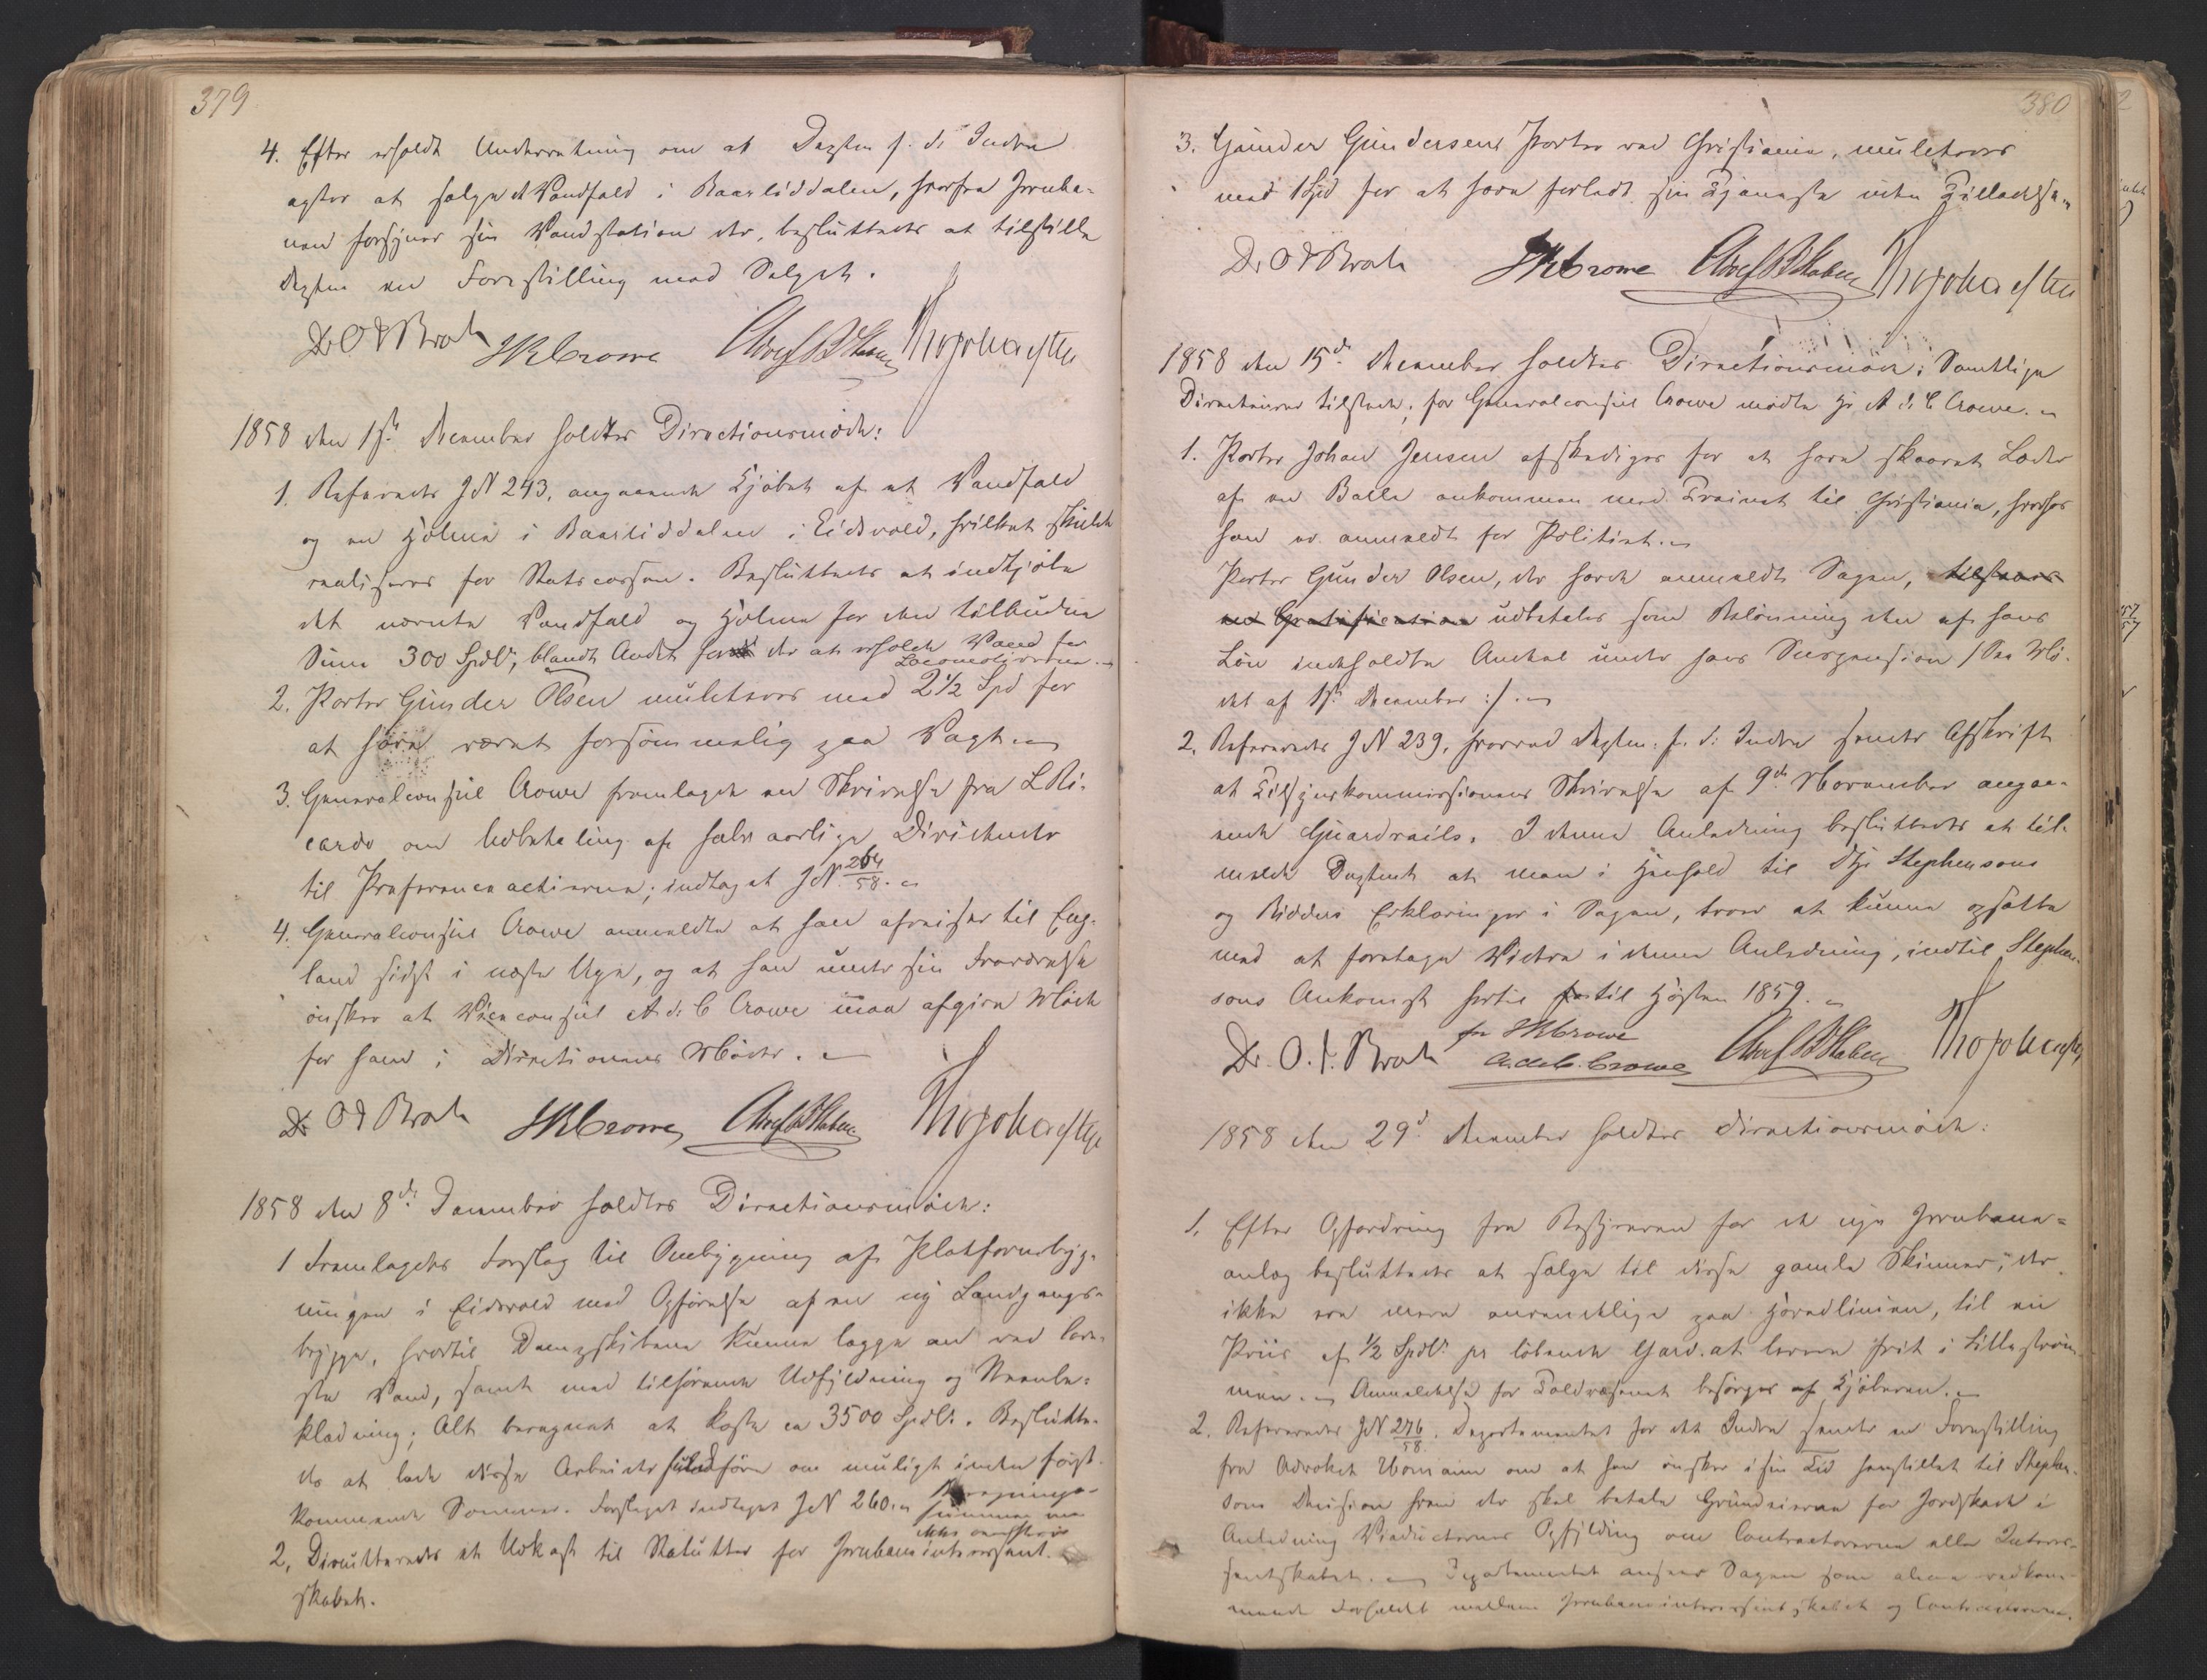 379
4. Efter erholdt Underretning om at Degten f. d. Indre
agter at sælge et Vandfald i Baarliddalen, hvorfra Jernba-
nen forsyner sin Vandstation der, besluttedes at tilstille
Degten en Forestilling mod Salget.
Dr. O J Broch JRCrowe Thv Johs Heftye
1858 den 1ste December holdtes Directionsmøde:
1. Refereredes J N 243, angaaende Kjøbet af et Vandfald
og en Holme i Baarliddalen i Eidsvold, hvilket skulde
realiseres for Statscassen. Besluttedes at indkjøbe
det nævnte Vandfald og Holme for den tilbudne
Sum 300 Spdlr, blandt Andet for der at erholde Vand for
Locomotiverne.
2. Porter Gunder Olsen mulcteres med 2 1/2 Spd for
at have været forsømmelig paa Vagt.
3. Generalconsul Crowe fremlagde en Skrivelse fra L Ri-
cardo om Udbetaling af halvaarlige Dividender
til Præferenceactierne; indtaget J N 264/58.
4. Generalconsul Crowe anmeldte at han afreiser til Eng-
land sidst i næste Uge, og at han under sin Fraværelse
ønsker at Viceconsul A d. C Crowe maa afgive Møde
for ham i Directionens Møder.
Dr O J Broch JRCrowe Thv Johs Heftye
1858 den 8de December holdtes Directionsmøde:
1 Fremlagdes Forslag til Ombygning af Platformbyg-
ningen i Eidsvold med Opførelse af en ny Landgangs-
brygge, hvortil Dampskibene kunne lægge an ved lave-
ste Vand, samt med tilhørende Udfyldning og Steenbe-
klædning; Alt beregnet at koste ca 3500 Spdlr. Beslutte-
des at lade disse Arbeider fuldføre om muligt inden først-
kommende Sommer. Forslaget indtaget J N 260.
ikke
2. Discutteredes et Udkast til Statutter for Jernbaneinteressent-
skabet.
380
3. Gunder Gundersen Porter ved Christiania, mulcteres
med 1 Spd for at have forladt sin Tjeneste uden Tilladelse.
Dr. O J Broch JRCrowe Thv Johs Heftye
1858 den 15de December holdtes Directionsmøde; Samtlige
Directeurer tilstede; for Generalconsul Crowe mødte Hr. A d. C Crowe.
1. Porter Johan Jensen afskediges for at have skaaret Læder
af en Balle ankommen med Trainet til Christiania, hvorfor
han er anmeldt for Politiet.
Porter Gunder Olsen, der havde anmeldt Sagen, tilstaaes
en Gratification udbetales som Belønning den af hans
Løn indeholdte Andeel under hans Suspension /: See Mø-
det af 1ste December :/.
2. Refereredes J N 239, hvorved Degten. f. d. Indre sendte Afskrift
at Tilsynskommissionens Skrivelse af 9de November angaa-
ende Guardrails. I denne Anledning besluttedes at til-
melde Degtemt at man i Henhold til DHr Stephensons
og Bidders Erklæringer i Sagen, troer at kunne opsætte
med at foretage Videre i denne Anledning, indtil Stephen-
sons Ankomst hertil til Høsten 1859.
Dr. O. J. Broch for JRCrowe
A. de C. Crowe Thv Joh Heftye
1858 den 29de December holdtes Directionsmøde:
1. Efter Opfordring fra Bestyreren for de nye Jernbane-
anlæg besluttedes at sælge til disse gamle Skinner, der
ikke ere mere anvendelige paa Hovedlinien, til en
Priis af 1/2 Spdlr pr løbende Yard. at levere frit i Lillestrøm-
men. Anmeldelse for Toldvæsenet besørges af Kjøberen.
2. Refereredes J N 276/58. Departementet for det Indre sendte en Forestilling
fra Advokat Homann om at han ønsker i sin Tid henstillet til Stephen-
sons Decision hvem der skal betale Grundeierne for Jordskade i
Anledning Viaducternes Opfyldning om Contractorerne eller Interes-
sentskabet. Departementet anseer Sagen som alene vedkom-
mende Forholdet mellem Jernbaneinteressentskabet og Contractorerne.